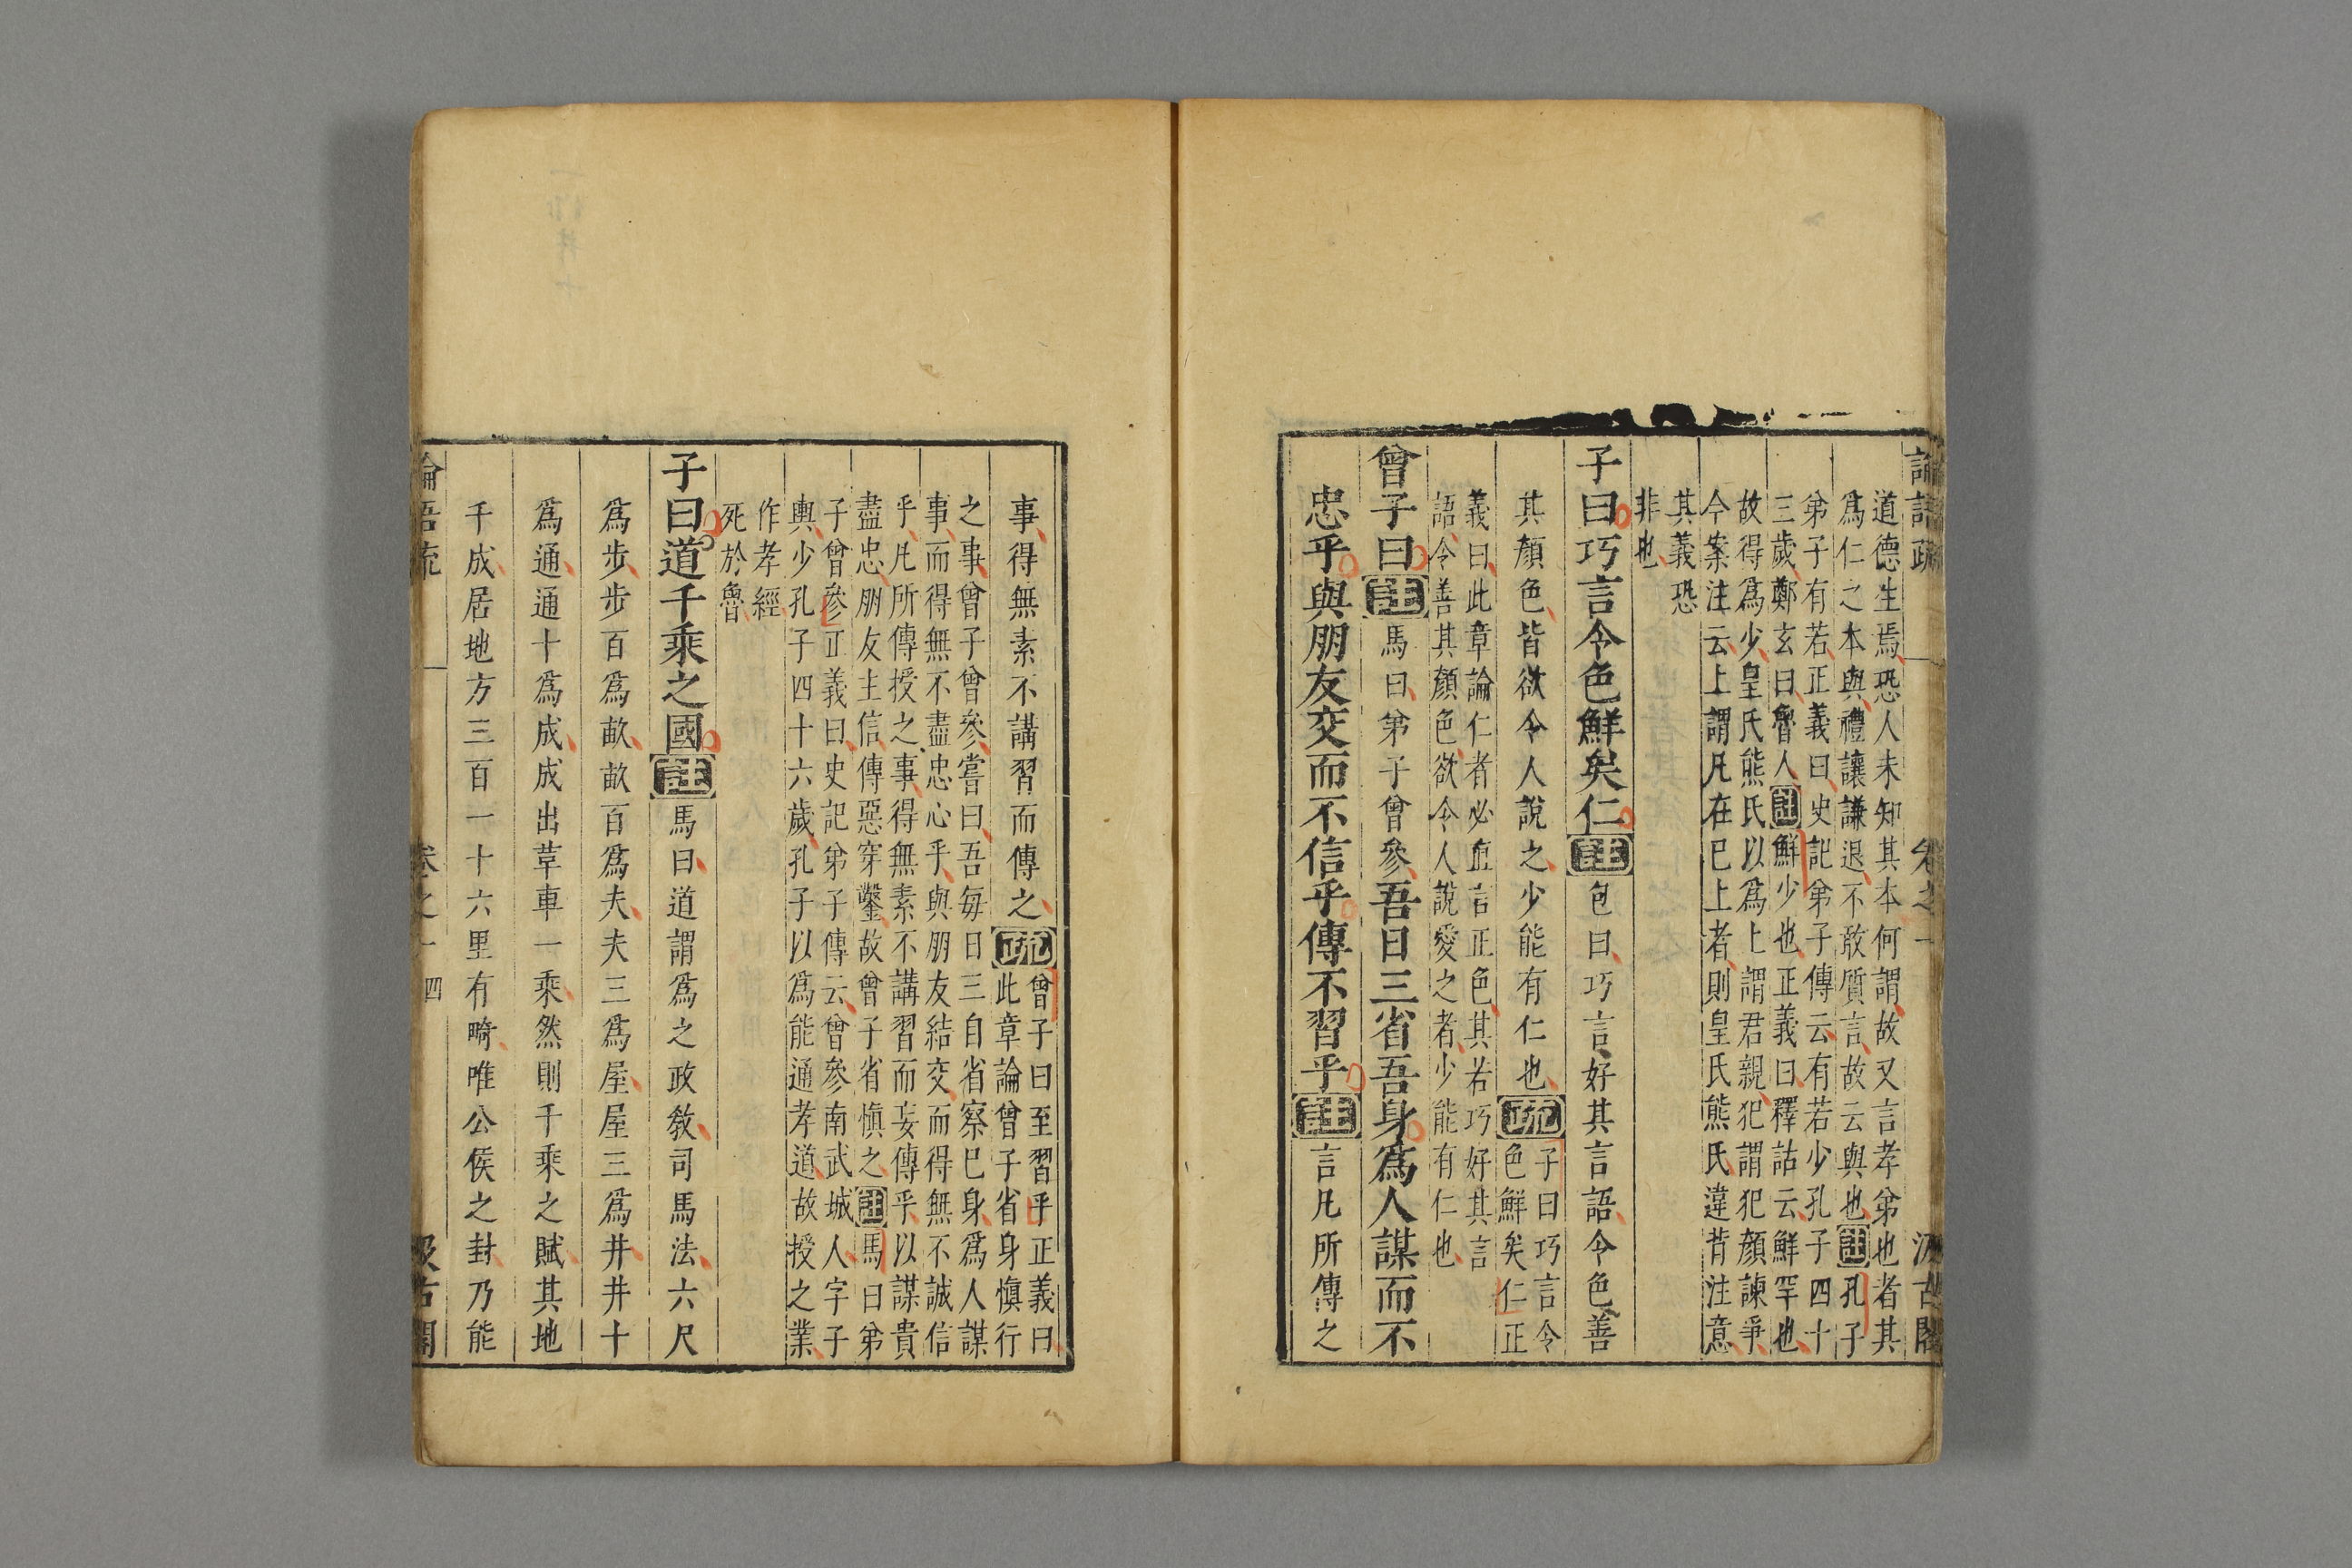 論語疏 卷之一 汲古閣
道德生焉恐人未知其本何謂故又言孝弟也者其
爲仁之本與禮讓謙退不敢質言故云與也註孔子
弟子有若正義曰史記弟子傳云有若少孔子四十
三歲鄭玄曰魯人註鮮少也正義曰釋詁云鮮罕也
故得爲少皇氏熊氏以爲上謂君親犯謂犯顏諫爭
今案注云上謂凡在已上者則皇氏熊氏違背注意
其義恐
非也
子曰巧言令色鮮矣仁註包曰巧言好其言語令色善
其顏色皆欲令人說之少能有仁也疏子曰巧言令
色鮮矣仁正
義曰此章論仁者必直言正色其若巧好其言
語令善其顏色欲令人說愛之者少能有仁也
曾子曰註馬曰弟子曾參吾日三省吾身爲人謀而不
忠乎與朋友交而不信乎傳不習乎註言凡所傳之
事得無素不講習而傳之疏曾子曰至習乎正義曰
此章論曾子省身愼行
之事曾子曾參嘗曰吾每日三自省察已身爲人謀
事而得無不盡忠心乎與朋友結交而得無不誠信
乎凡所傳授之事得無素不講習而妄傳乎以謀貴
盡忠朋友主信傳惡穿鑿故曾子省愼之註馬曰弟
子曾參正義曰史記弟子傳云曾參南武城人字子
輿少孔子四十六歲孔子以爲能通孝道故授之業
作孝經
死於魯
子曰道千乘之國註馬曰道謂爲之政敎司馬法六尺
爲步步百爲畝畝百爲夫夫三爲屋屋三爲井井十
爲通通十爲成成出革車一乘然則千乘之賦其地
千成居地方三百一十六里有畸唯公侯之封乃能
論語疏 卷之一 四 汲古閣